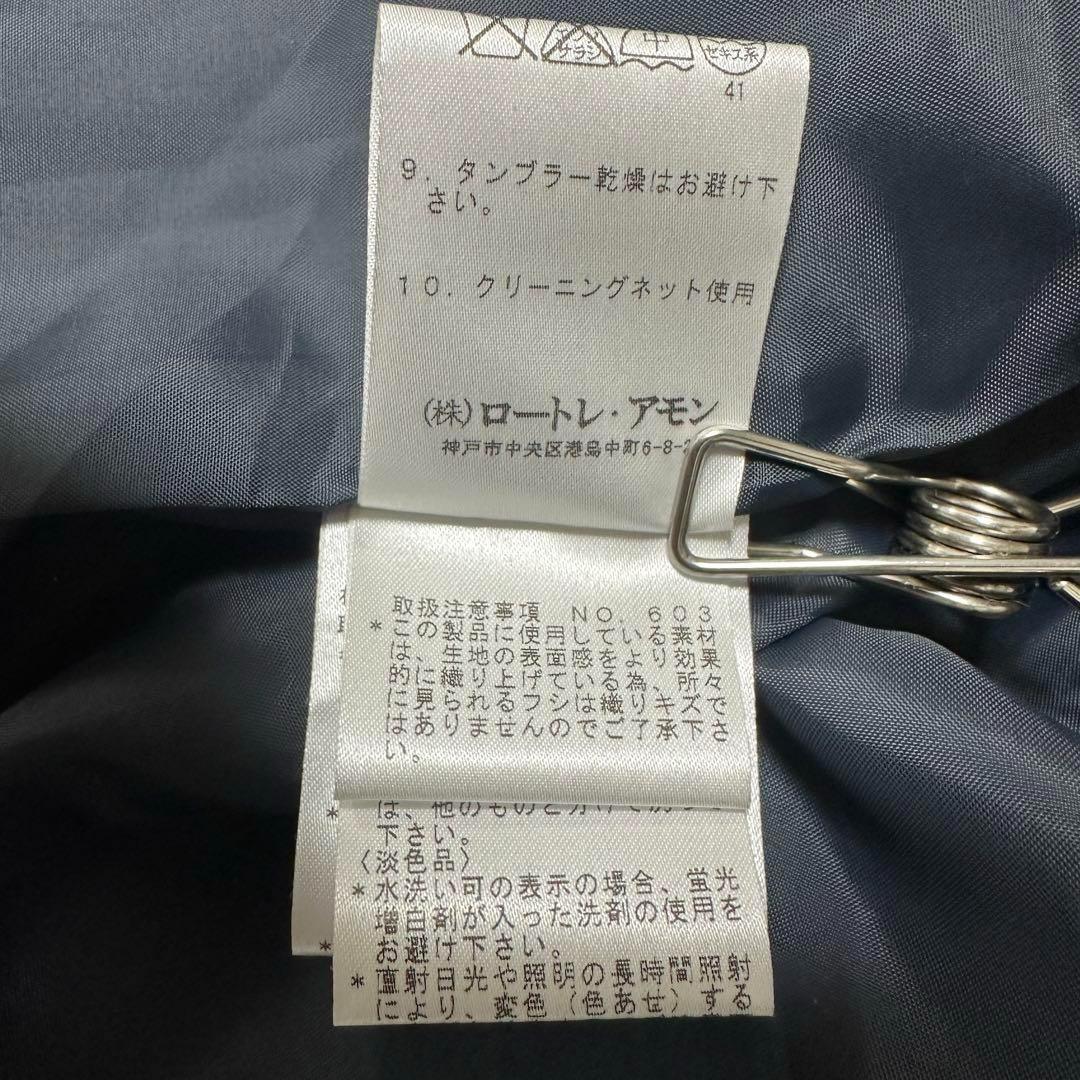 サラシ
中
セキユ系
41
9. タンブラー乾燥はお避け下
さい。
10. クリーニングネット使用
(株)ロートレ・アモン
神戸市中央区港島中町6-8-
取扱注意事項 NO. 603
*この製品に使用している素材
は、生地の表面感をより効果
的に織り上げている為、所々
に見られるフシは織りキズで
はありませんのでご了承下さ
い。
は、他のものと分けて洗って
下さい。
〈淡色品〉
*水洗い可の表示の場合、蛍光
増白剤が入った洗剤の使用を
お避け下さい。
*直射日光や照明の長時間照射
により、変色(色あせ)する